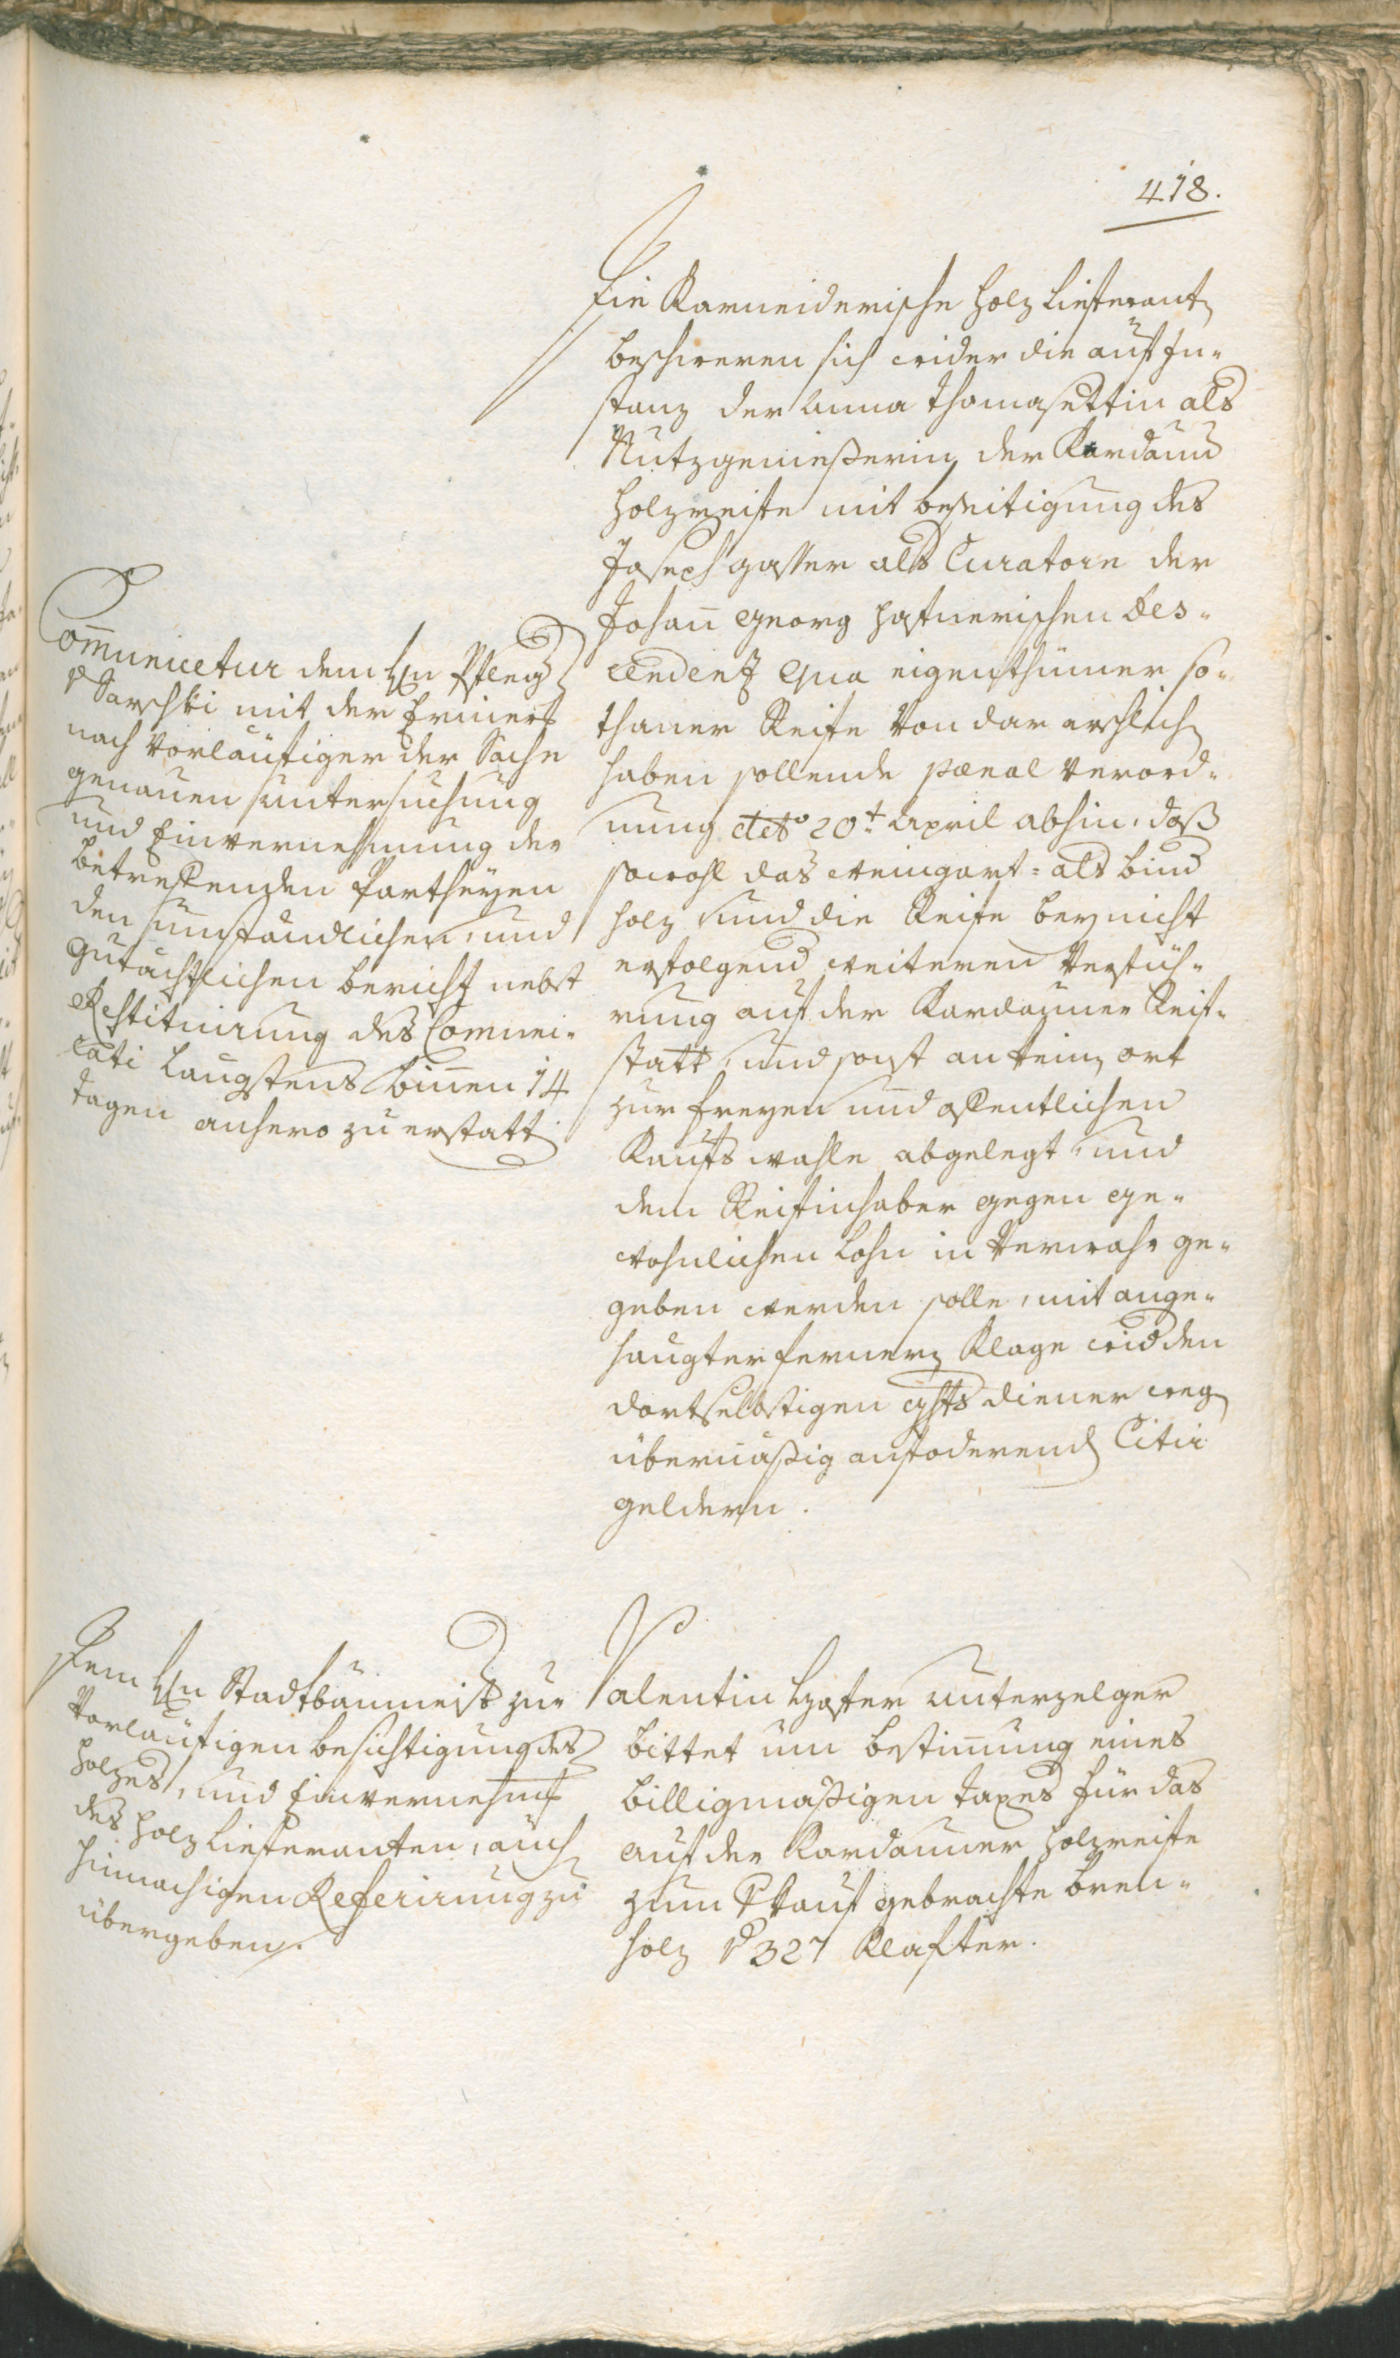 418.
Die Karneiderische Holz Lieferant
beschweren sich wider die auf In-
stanz der Anna Thomasettin als
Nutzgenießerin der Kardaund
Holzreife mit beseitigung des
Joseph Gasser als Curatorn der
Johañ Georg Hafnerischen Des-
cendenz qua eigenthümer so-
thaner Reife von dar erschlich
haben sollende pœnal verord-
nung dtto 20t April abhin, daß
sowohl das Weingart- als bind
holz und die Reife bey nicht
erfolgend weiteren Verfüh-
rung auf der Kardauner Reif-
statt, und sonst an kein ort
zur freyen und offentlichen
Kaufs wahle abgelegt, und
dem Reifinhaber gegen ge-
wohnlichen Lohn in Verwahr ge-
geben werden solle, mit ange-
hangter fernerz Klage wid den
dortselbstigen Ghts diener weg
übermäßig anfoderend Citir
geldern.
Com̄unicetur dem Hn Pfleg
v Sarschki mit der Erinerg
nach vorläufiger der Sache
genauen untersuchung
und Einvernehmung der
betreffenden Partheyen
den umständlichen, und
gutächtlichen bericht nebst
Restituirung des Commni-
cati Laengstens biñen 14
tagen anhero zu erstatt
Valentin Hofer Unterzelger
bittet um bestim̄ung eines
billigmäßigen Taxes für das
auf der Kardauner Holzreife
zum Vkauf gebrachte bren-
holz p 327 Klafter.
Dem Hn Stadtbaumeist zur
Vorläufigen besichtigung des
Holzes, und Einvernehmg
des Holz Lieferanten, auch
hinnachigen Referirung zu
übergeben.